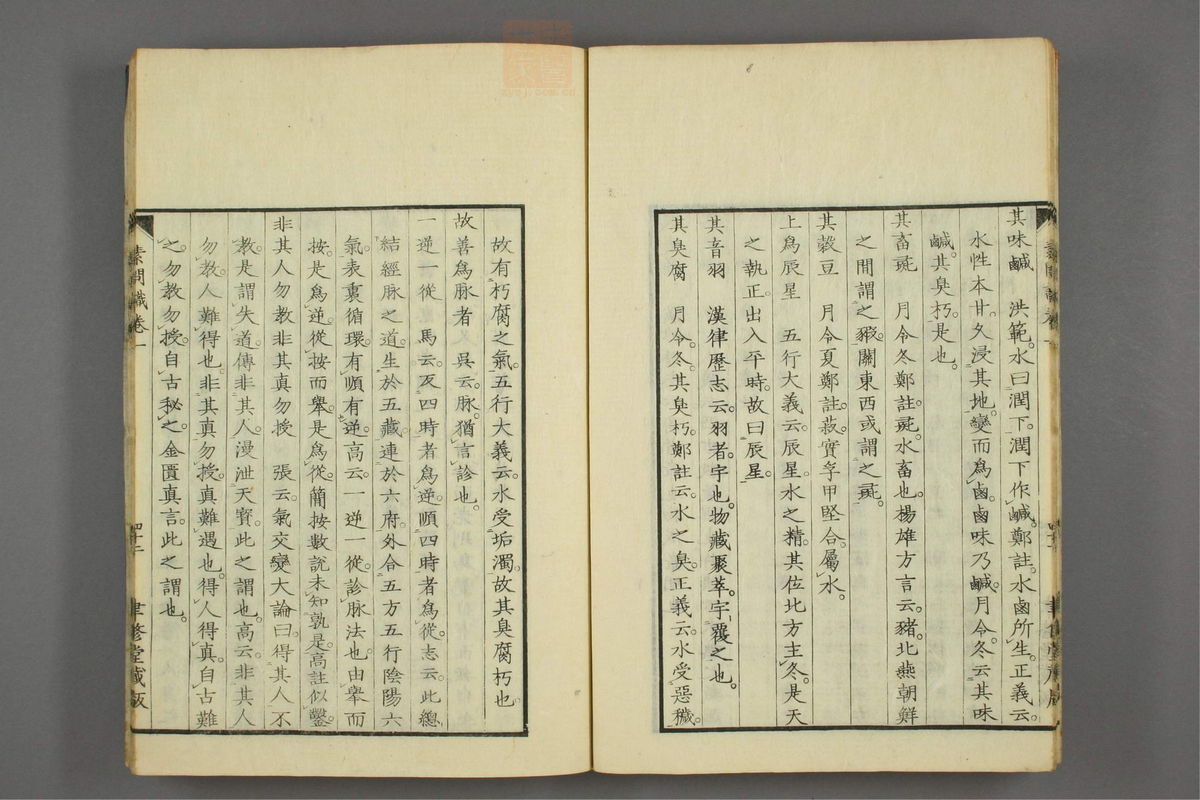 其味鹹　洪範。水曰潤下。潤下作鹹。鄭註。水鹵所生。正義云。
水性本甘。久浸其地。變而爲鹵。鹵味乃鹹。月令。冬云其味
鹹。其臭朽。是也。
其畜彘　月令冬鄭註。彘。水畜也。楊雄方言云。豬。北燕朝鮮
之間謂之豭。關東西或謂之彘。
其穀豆　月令夏鄭註。菽。實孚甲堅合。屬水。
上爲辰星　五行大義云。辰星。水之精。其位北方。主冬。是天
之執正。出入平時。故曰辰星。
其音羽　漢律歷志云。羽者。宇也。物藏聚萃。宇覆之也。
其臭腐　月令。冬。其臭朽。鄭註云。水之臭。正義云。水受惡穢。
故有朽腐之氣。五行大義云。水受垢濁。故其臭腐朽也。
故善爲脉者　吳云。脉。猶言診也。
一逆一從　馬云。反四時者爲逆。順四時者爲從。志云。此總
結經脉之道。生於五藏。連於六府。外合五方五行陰陽六
氣。表裏循環。有順有逆。高云。一逆一從。診脉法也。由舉而
按。是爲逆。從按而舉。是爲從。簡按數說未知孰是。高註似鑿。
非其人勿教非其真勿授　張云。氣交變大論曰。得其人不
教。是謂失道。傳非其人。漫泄天寶。此之謂也。高云。非其人
勿教。人難得也。非其真勿授。真難遇也。得人得真。自古難
之。勿教勿授。自古秘之。金匱真言。此之謂也。
素問識卷一
四十二
聿修堂藏版